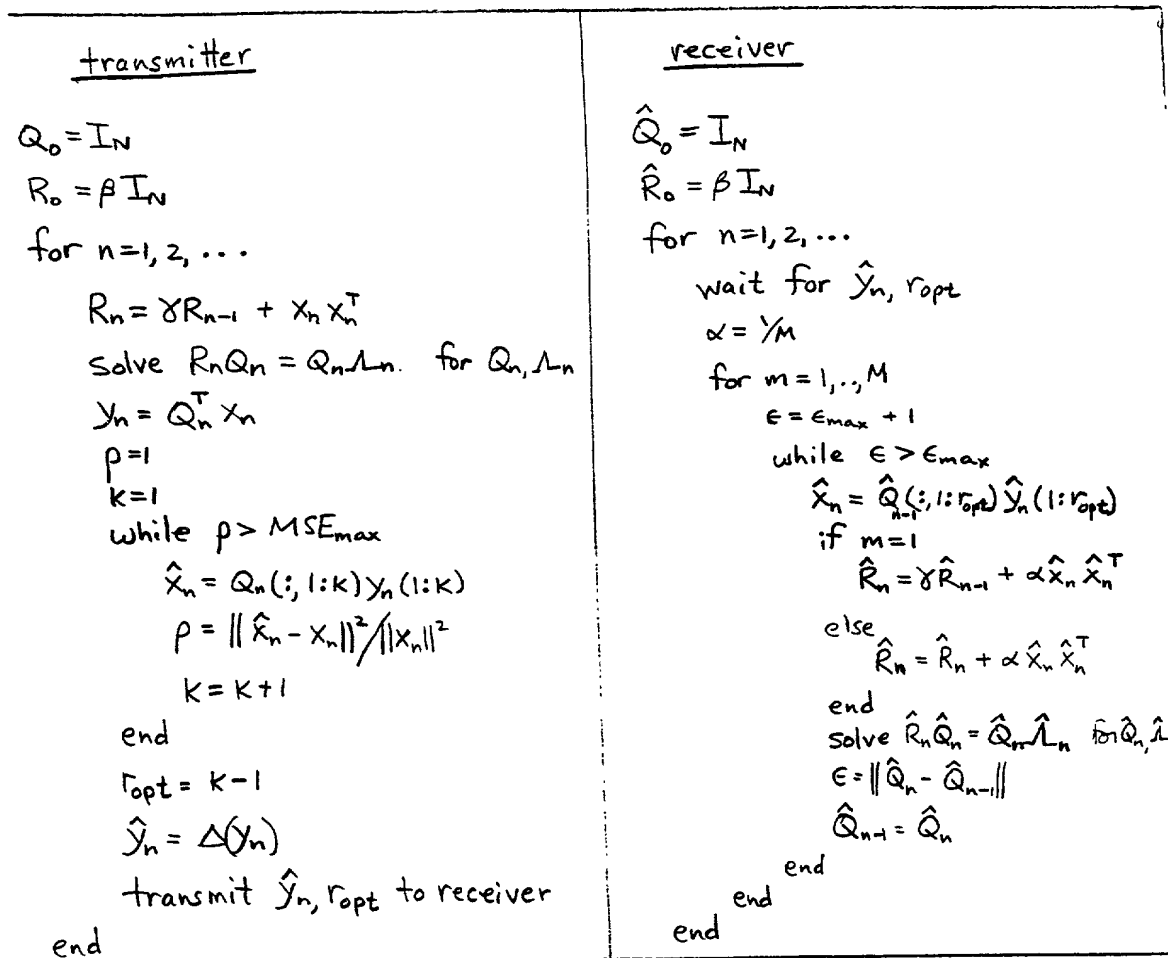 transmitter
Q₀ = I_N
R₀ = β I_N
for n=1, 2, ...
Rₙ = γRₙ₋₁ + xₙ xₙᵀ
solve RₙQₙ = QₙΛₙ. for Qₙ, Λₙ
yₙ = Qₙᵀ xₙ
ρ=1
k=1
while ρ > MSE_max
x̂ₙ = Qₙ(:, 1:k) yₙ(1:k)
ρ = ‖x̂ₙ - xₙ‖²/‖xₙ‖²
k = k+1
end
r_opt = k-1
ŷₙ = Δ(yₙ)
transmit ŷₙ, r_opt to receiver
end
receiver
Q̂₀ = I_N
R̂₀ = β I_N
for n=1, 2, ...
wait for ŷₙ, r_opt
α = 1/M
for m = 1,.., M
ε = ε_max + 1
while ε > ε_max
x̂ₙ = Q̂ₙ₋₁(:, 1:r_opt) ŷₙ(1:r_opt)
if m=1
R̂ₙ = γR̂ₙ₋₁ + α x̂ₙ x̂ₙᵀ
else
R̂ₙ = R̂ₙ + α x̂ₙ x̂ₙᵀ
end
solve R̂ₙQ̂ₙ = Q̂ₙΛ̂ₙ for Q̂ₙ, Λ̂
ε = ‖Q̂ₙ - Q̂ₙ₋₁‖
Q̂ₙ₋₁ = Q̂ₙ
end
end
end